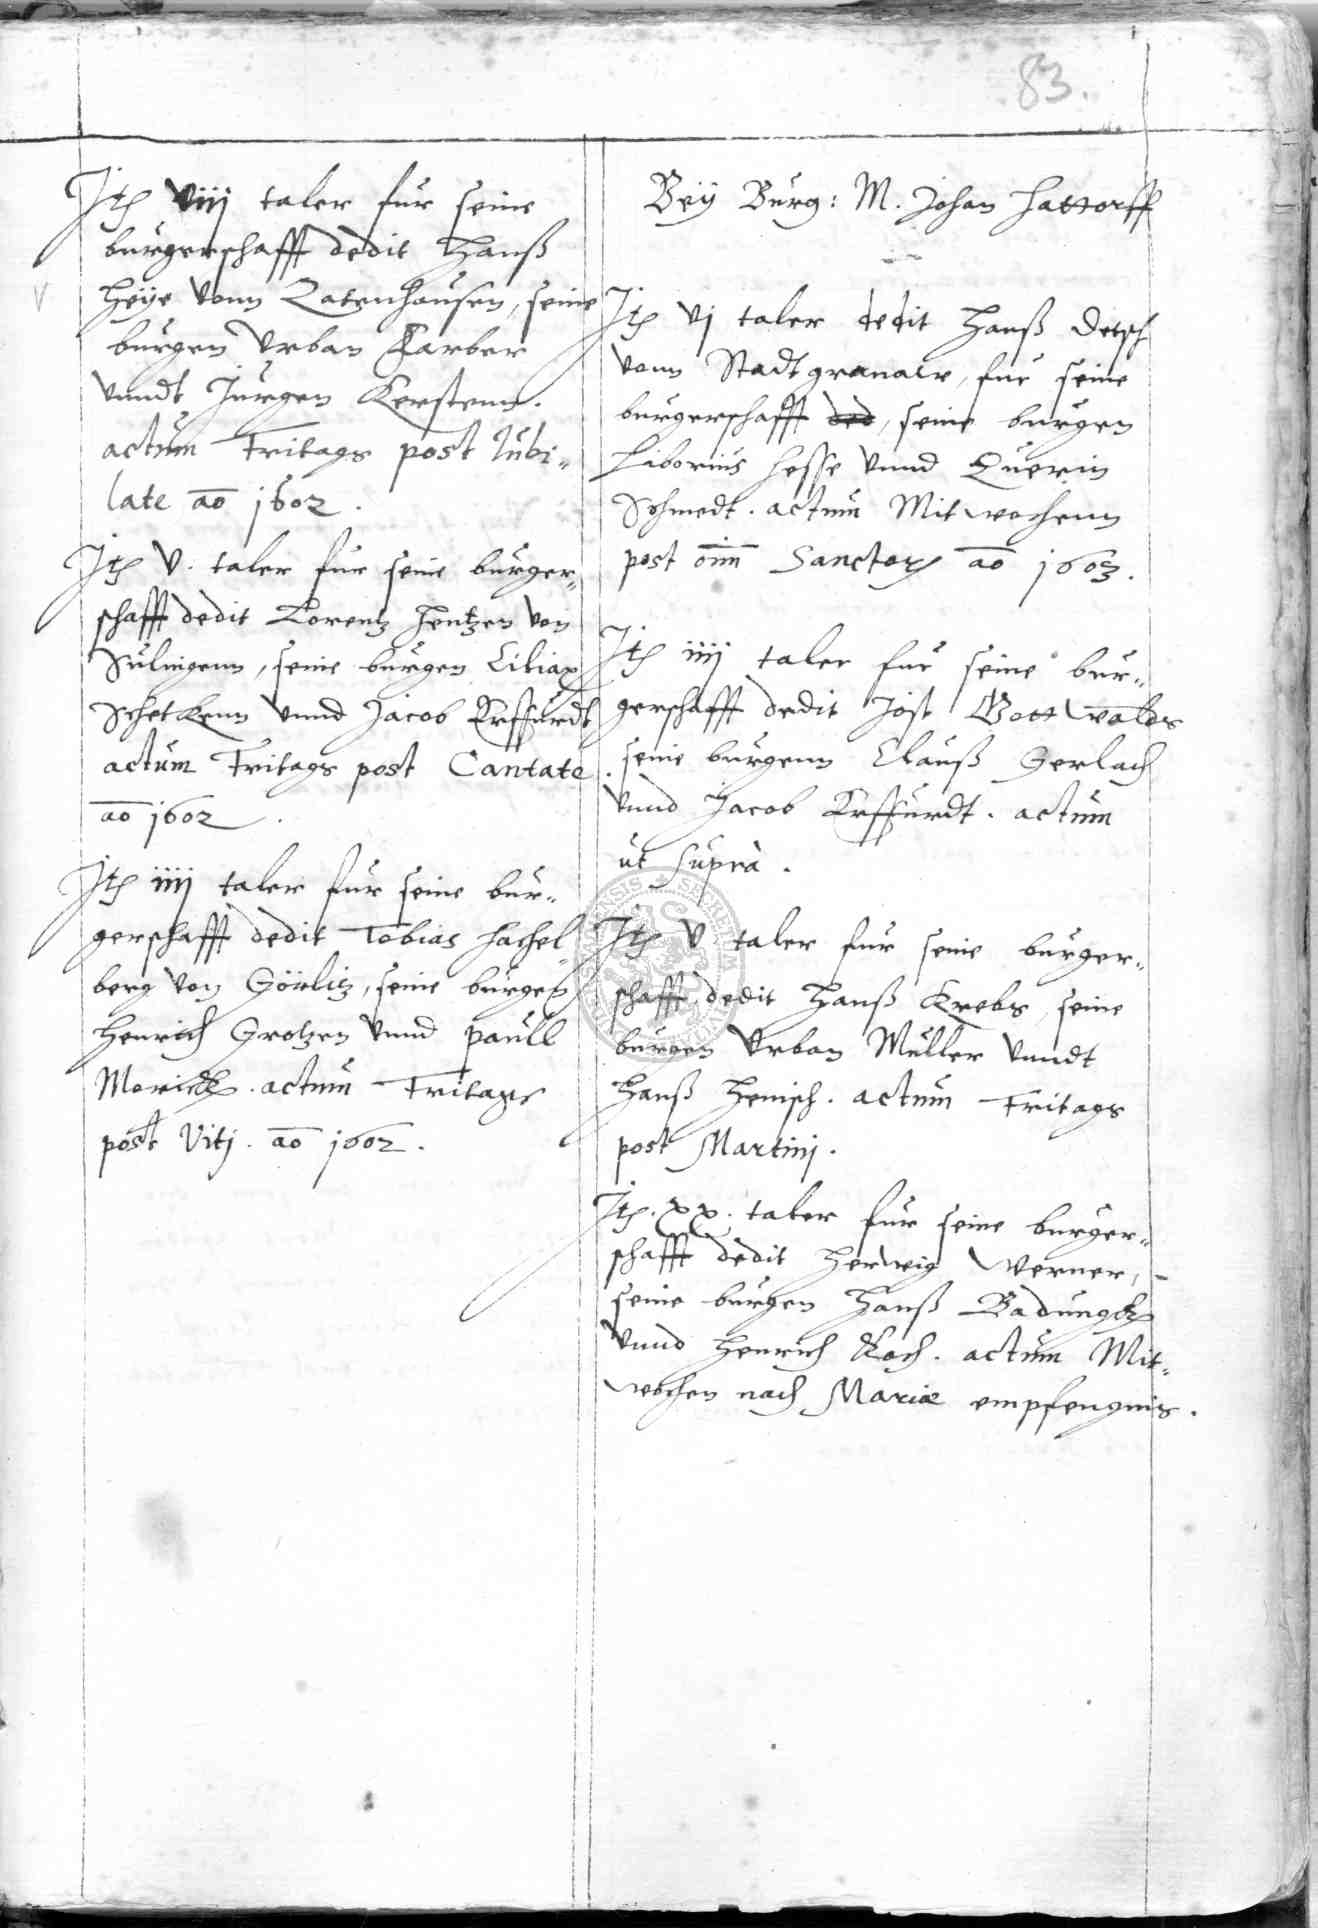 83.
Jt͠ viij taler fur seine
burgerschafft dedit Hanß
Heÿe vonn Zatenhausen, seine
burgen Vrban Karber
vnndt Jurgen Kerstenn.
actum Fritags post Jubi„
late ao 1602.
Jt͠ v. taler fur seine burger„
schafft dedit Lorentz Hentzen von
Sulingenn, seine burgen Ciliax
Schetkenn vnnd Jacob Erffurdt
actum Fritags post Cantate
ao 1602.
Jt͠ iiij taler fur seine bur„
gerschafft dedit Tobias Hachel„
berg von Görlitz, seine burgen
Henrich Grotzen vnnd Paull
actum Fritags
post Viti. ao 1602.
Beÿ Burg: M. Johan Hattorff
Jt͠ vj taler dedit Hanß Detsch
vonn Stadt , fur seine
burgerschafft ded, seine burgen
Liborius Hesse vnnd Querin
Schmedt. actum Mitwochenn
post oim̄ Sanctorꝫ ao 1603.
Jt͠ iiij taler fur seine bur„
gerschafft dedit Jost Gottwaldt
seine burgenn Clauß Gerlach
vnnd Jacob Erffurdt. actum
ut supra.
Jt͠ v taler fur seine burger„
schafft dedit Hanß Krebs, seine
burgen Vrban Muller vnndt
Hanß Henisch. actum Fritags
post Martinj.
Jt͠. xx. taler fur seine burger„
schafft dedit Herwig Werner,
seine burgen Hanß Badungk
vnnd Henrich Koch. actum Mit„
wochen nach Mariæ empfengnis.